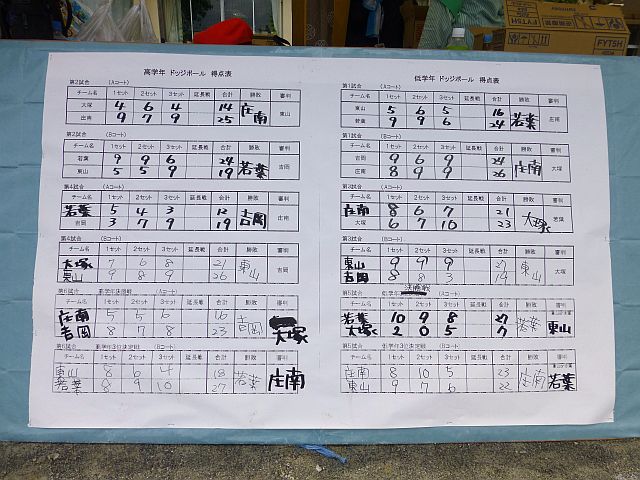 高学年 ドッジボール 得点表
第2試合 (Aコート)
チーム名 1セット 2セット 3セット 延長戦 合計 勝敗 審判
大塚 4 6 4 14 庄南 東山
庄南 9 7 9 25
第2試合 (Bコート)
チーム名 1セット 2セット 3セット 延長戦 合計 勝敗 審判
若葉 9 9 6 24 若葉 吉岡
東山 5 5 9 19
第4試合 (Aコート)
チーム名 1セット 2セット 3セット 延長戦 合計 勝敗 審判
若葉 5 4 3 12 吉岡 庄南
吉岡 3 7 9 19
第4試合 (Bコート)
チーム名 1セット 2セット 3セット 延長戦 合計 勝敗 審判
大塚 7 6 8 21 東山 吉岡
東山 9 8 9 26
第6試合 高学年決勝戦 (Aコート)
チーム名 1セット 2セット 3セット 延長戦 合計 勝敗 審判
庄南 5 5 6 16 吉岡 大塚
吉岡 8 7 8 23
第6試合 高学年3位決定戦 (Bコート)
チーム名 1セット 2セット 3セット 延長戦 合計 勝敗 審判
東山 8 6 4 18 若葉 庄南
若葉 8 9 10 27
低学年 ドッジボール 得点表
第1試合 (Aコート)
チーム名 1セット 2セット 3セット 延長戦 合計 勝敗 審判
東山 5 6 5 16 若葉 庄南
若葉 9 9 6 24
第1試合 (Bコート)
チーム名 1セット 2セット 3セット 延長戦 合計 勝敗 審判
吉岡 9 6 9 24 庄南 大塚
庄南 8 9 9 26
第3試合 (Aコート)
チーム名 1セット 2セット 3セット 延長戦 合計 勝敗 審判
庄南 8 6 7 21 大塚 若葉
大塚 6 7 10 23
第3試合 (Bコート)
チーム名 1セット 2セット 3セット 延長戦 合計 勝敗 審判
東山 9 9 9 27 東山 大塚
吉岡 8 8 3 19
決勝戦
第5試合 (Aコート)
チーム名 1セット 2セット 3セット 延長戦 合計 勝敗 審判
若葉 10 9 8 27 若葉 東山
大塚 2 0 5 7
第5試合 低学年3位決定戦 (Bコート)
チーム名 1セット 2セット 3セット 延長戦 合計 勝敗 審判
庄南 8 10 5 23 庄南 若葉
東山 9 7 6 22
FYT5H
FYT5H